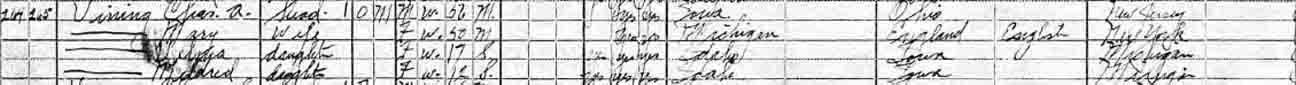 264 265 Vining Chas. A. Head 1 O M M W 56 M yes yes Iowa Ohio New Jersey
Mary Wife F W 50 M yes yes Michigan England English New York
daughter F W 17 S yes yes Idaho Iowa Michigan
Mildred daughter F W 12 S yes yes yes Idaho Iowa Michigan